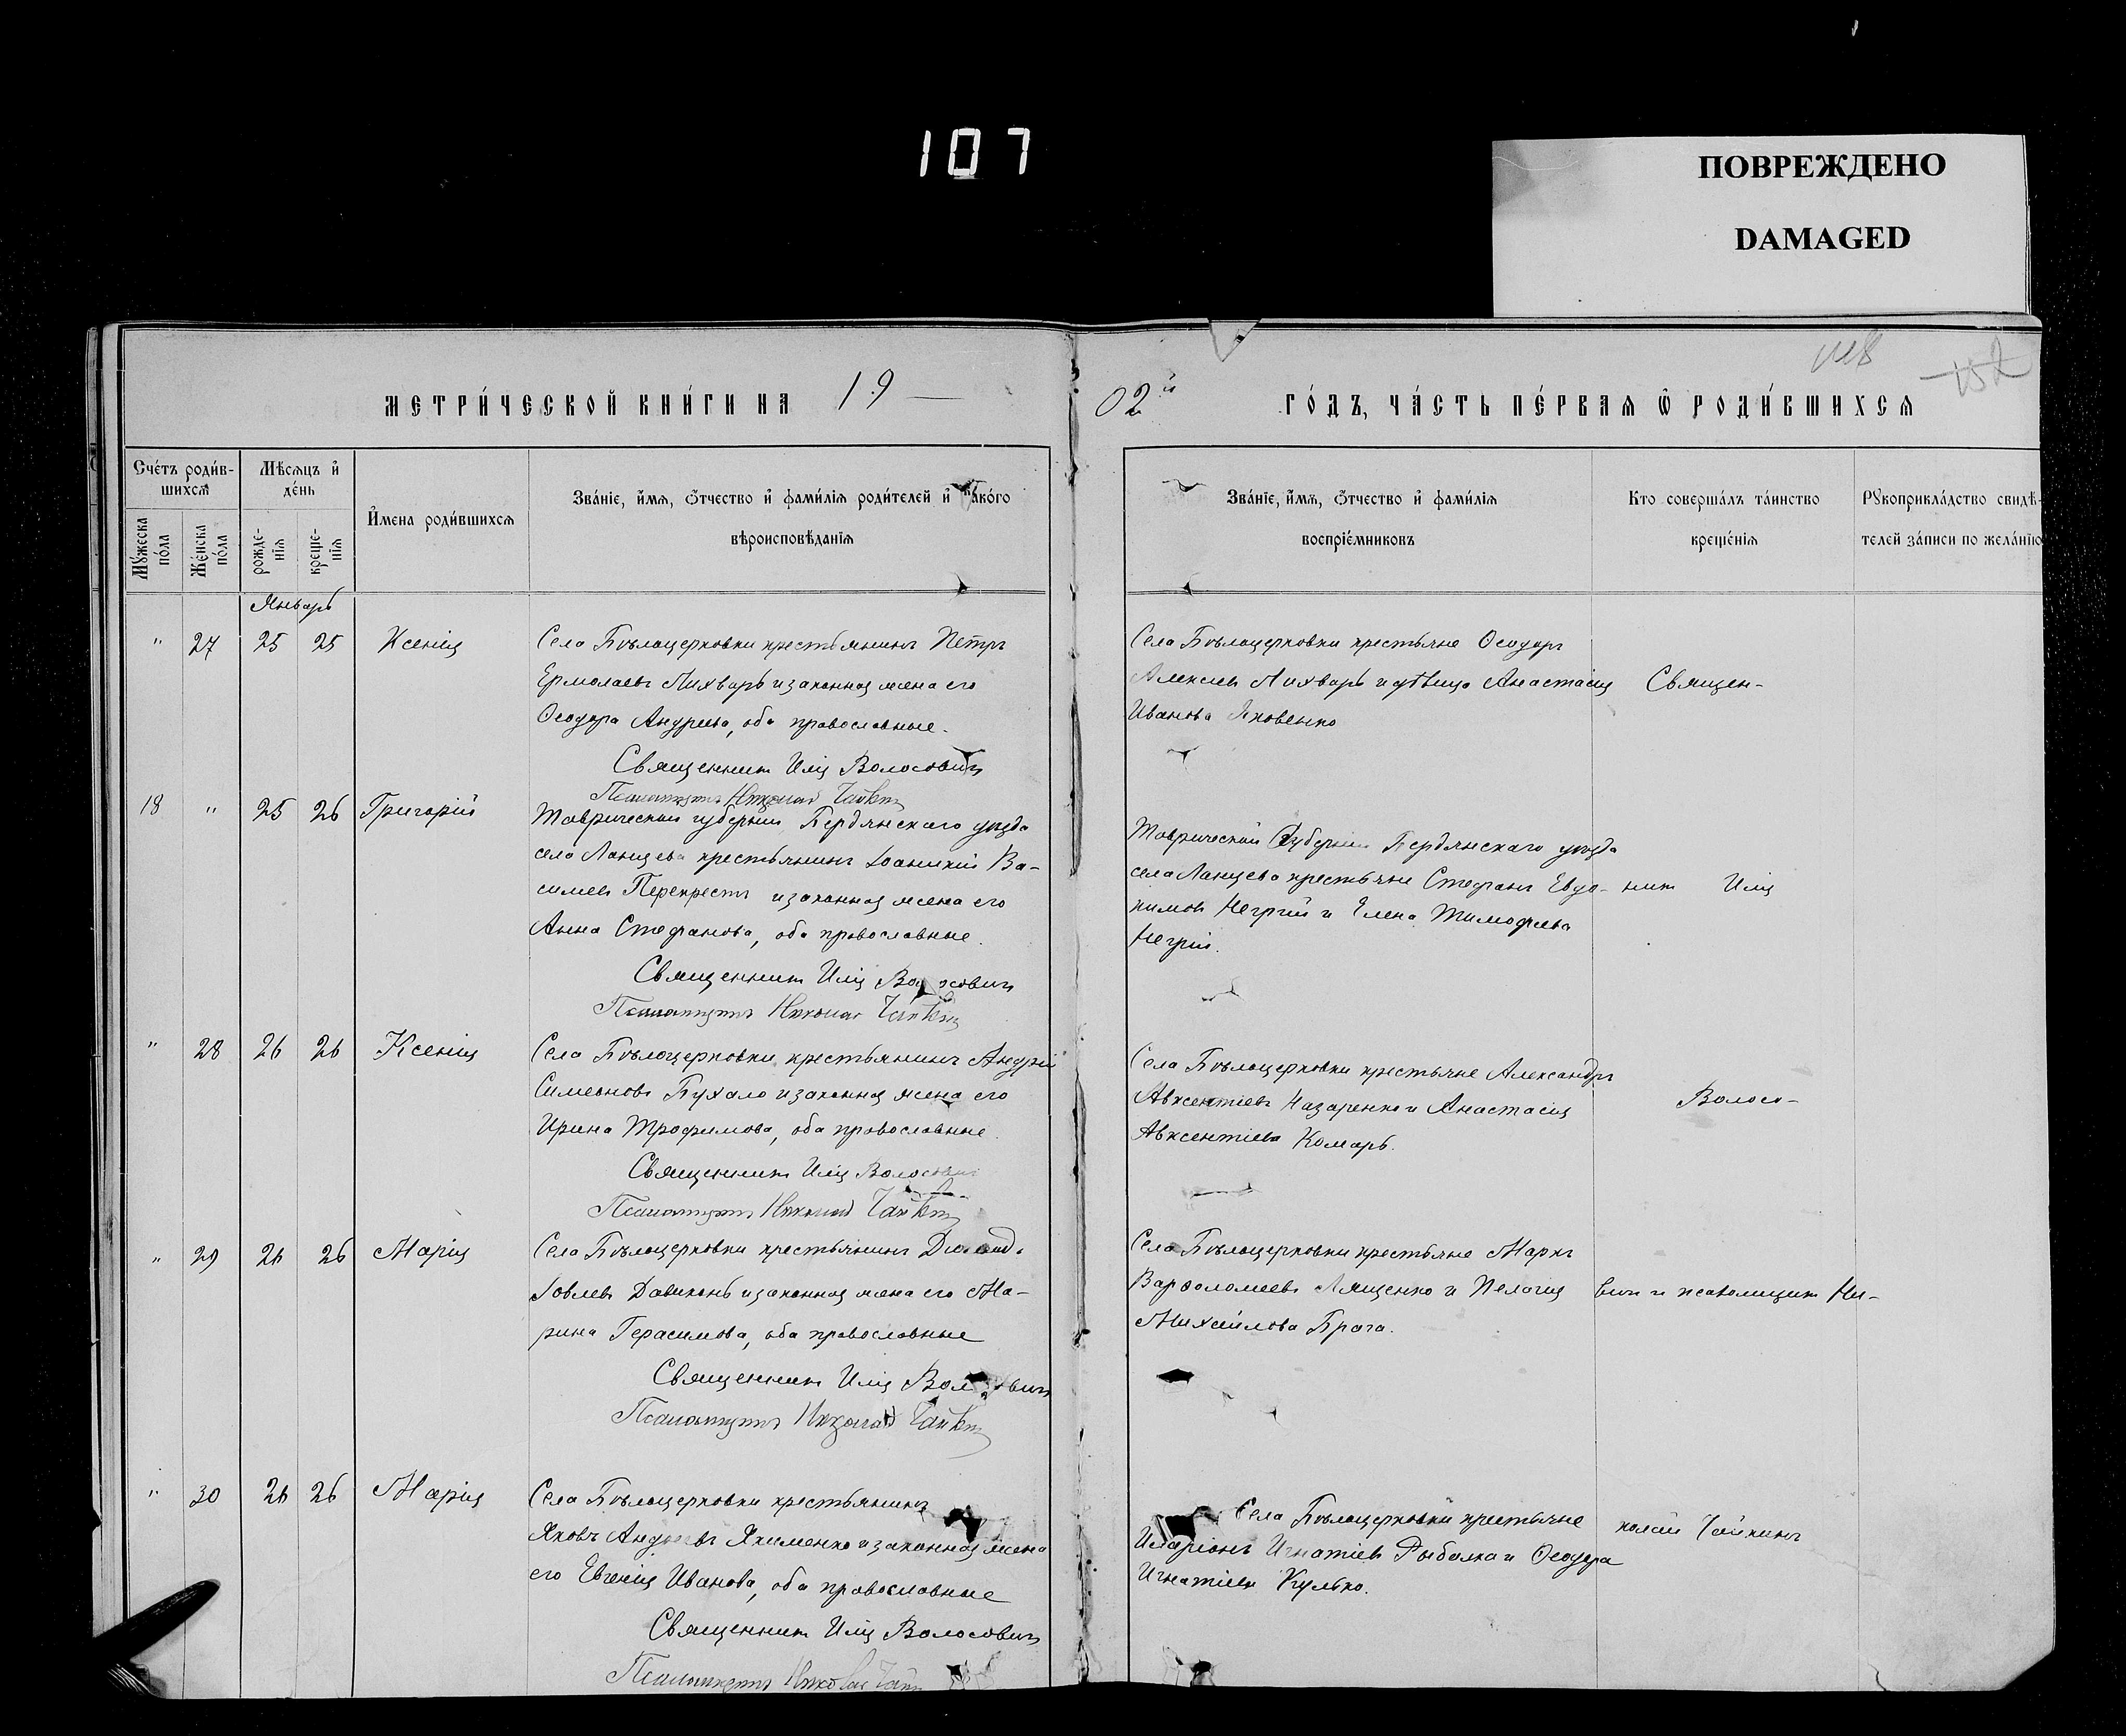 107
ПОВРЕЖДЕНО
DAMAGED
МЕТРИ́ЧЕСКОЙ КНИ́ГИ НА 19 —
02й ГО́ДЪ, ЧА́СТЬ ПЕ́РВАЯ Ѿ РОДИ́ВШИХСЯ
Сче́тъ роди́в-
шихсѧ
Мѣсѧцъ и҆
де́нь
Му́жеска
по́ла
Же́нска
по́ла
рожде́-
нїѧ
креще́-
нїѧ
И҆мена роди́вшихсѧ
Зва́нїе, и҆́мѧ, ѻ҆́тчество и҆ фами́лїѧ роди́телей и҆ како́го
вѣроисповѣ́данїѧ
Зва́нїе, и҆́мѧ, ѻ҆́тчество и҆ фами́лїѧ
воспрїе́мниковъ
Кто соверша́лъ та́инство
креще́нїѧ
Рꙋкоприкла́дство свидѣ́-
телей за́писи по жела́нїю
Январь
" 27 25 25 Ксенія
Села Бѣлоцерковки крестьянинъ Петръ
Ермолаевъ Лихварь и законная жена его
Ѳеодора Андреева, оба православные.
Священникъ Илія Волосовичъ
Псаломщикъ Николай Чайкинъ
Села Бѣлоцерковки крестьяне Ѳеодоръ
Алексіевъ Лихварь и дѣвица Анастасія
Иванова Яковенко
Священ-
18 " 25 26 Григорій
Таврической губерніи Бердянскаго уѣзда
села Ланцева крестьянинъ Іоанникій Ва-
силіевъ Перекрестъ и законная жена его
Анна Стефанова, оба православные.
Священникъ Илія Волосовичъ
Псаломщикъ Николай Чайкинъ
Таврической Губерніи Бердянскаго уѣзда
села Ланцева крестьяне Стефанъ Евдо-
кимовъ Негрій и Елена Тимофеева
Негрій.
никъ Илія
" 28 26 26 Ксенія
Села Бѣлоцерковки крестьянинъ Андрей
Симеоновъ Пухало и законная жена его
Ирина Трофимова, оба православные.
Священникъ Илія Волосовичъ
Псаломщикъ Николай Чайкинъ
Села Бѣлоцерковки крестьяне Александръ
Авксентіевъ Назаренко и Анастасія
Авксентіева Комарь.
Волосо-
" 29 26 26 Марія
Села Бѣлоцерковки крестьянинъ
Іовлевъ Давиканъ и законная жена его Ма-
рина Герасимова, оба православные
Священникъ Илія Волосовичъ
Псаломщикъ Николай Чайкинъ
Села Бѣлоцерковки крестьяне Маркъ
Варѳоломеевъ Лященко и Пелагія
Михайлова Брага.
вичъ и псаломщикъ Ни-
" 30 26 26 Марія
Села Бѣлоцерковки крестьянинъ
Яковъ Андреевъ Якименко и законная жена
его Евгенія Иванова, оба православные
Священникъ Илія Волосовичъ
Псаломщикъ Николай Чайкинъ
Села Бѣлоцерковки крестьяне
Иларіонъ Игнатіевъ Рыбалка и Ѳеодора
Игнатіева Кулько.
колай Чайкинъ